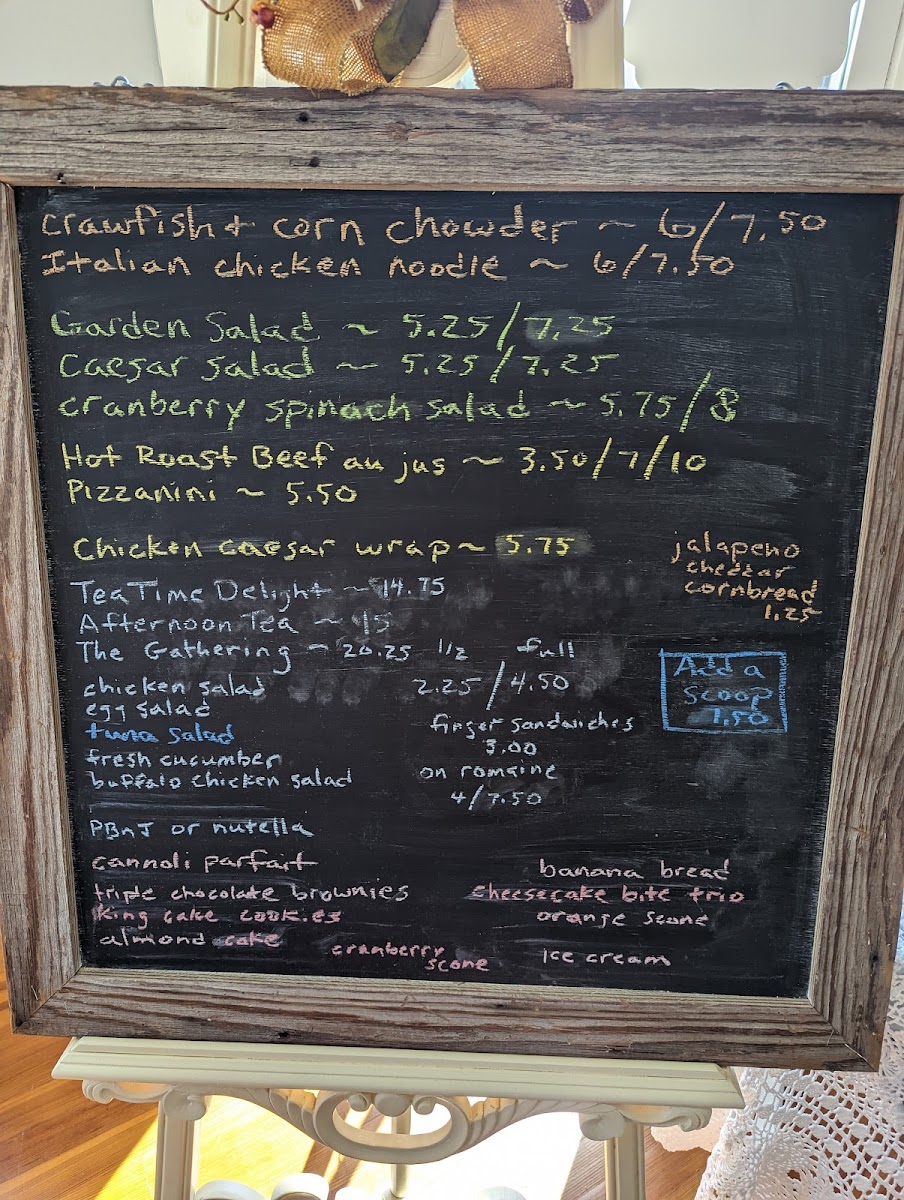 crawfish + corn chowder ~ 6/7.50
Italian chicken noodle ~ 6/7.50
Garden Salad ~ 5.25/7.25
Caesar salad ~ 5.25/7.25
cranberry spinach salad ~ 5.75/8
Hot Roast Beef au jus ~ 3.50/7/10
Pizzanini ~ 5.50
Chicken caesar wrap ~ 5.75
jalapeno
cheddar
cornbread
1.25
Tea Time Delight ~ 14.75
Afternoon Tea ~ 15
The Gathering ~ 20.25 1/2 full
chicken salad 2.25/4.50
egg salad finger sandwiches
tuna salad 3.00
fresh cucumber on romaine
buffalo chicken salad 4/7.50
Add a
scoop
1.50
PBnJ or nutella
cannoli parfait banana bread
triple chocolate brownies cheesecake bite trio
king cake cookies orange scone
almond cake cranberry
scone ice cream